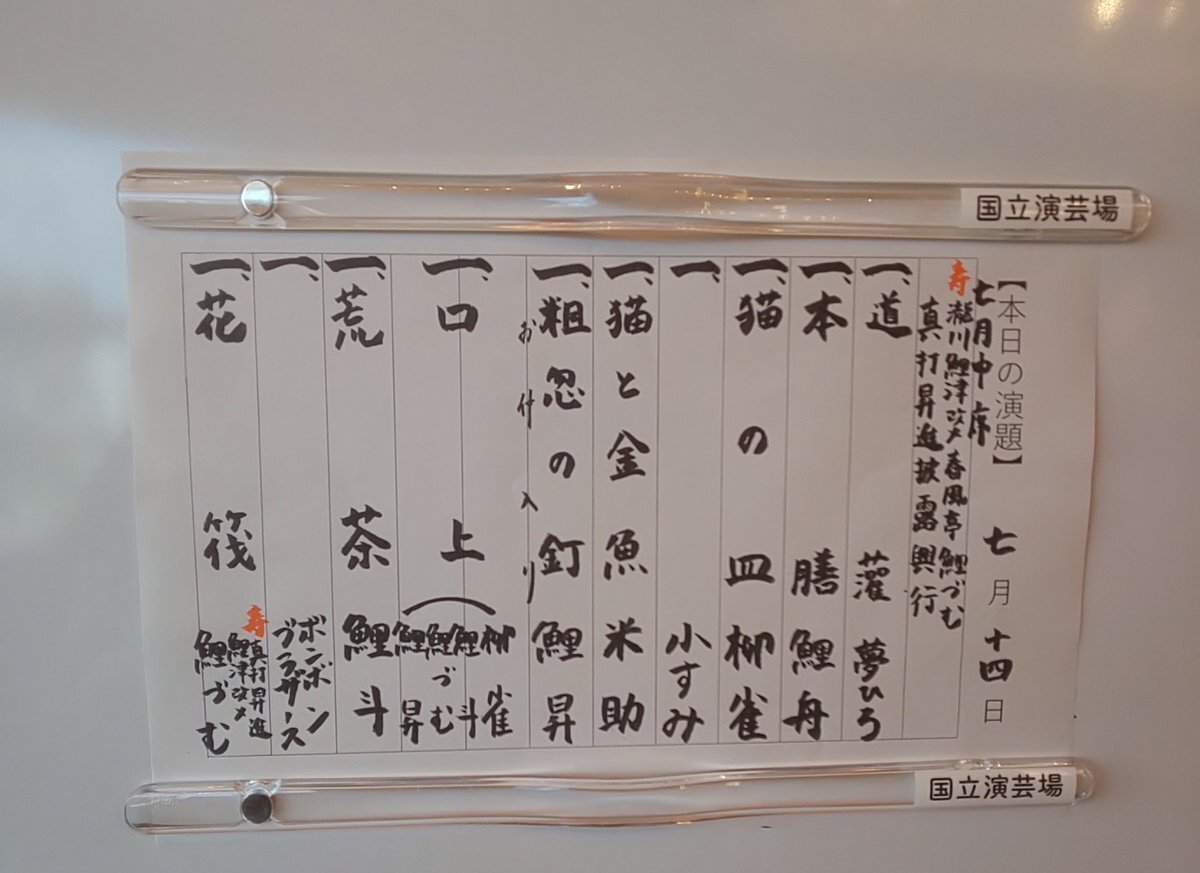 国立演芸場
【本日の演題】 七月十四日
七月中席
寿 瀧川鯉津改メ春風亭鯉づむ
真打昇進披露興行
一、道灌 夢ひろ
一、本膳 鯉舟
一、猫の皿 柳雀
一、 小すみ
一、猫と金魚 米助
一、粗忽の釘 鯉昇
お仲入り
一、口上 柳雀 鯉斗 鯉づむ 鯉昇
一、荒茶 鯉斗
一、 ボンボンブラザース
一、花筏 寿 真打昇進 鯉津改メ 鯉づむ
国立演芸場